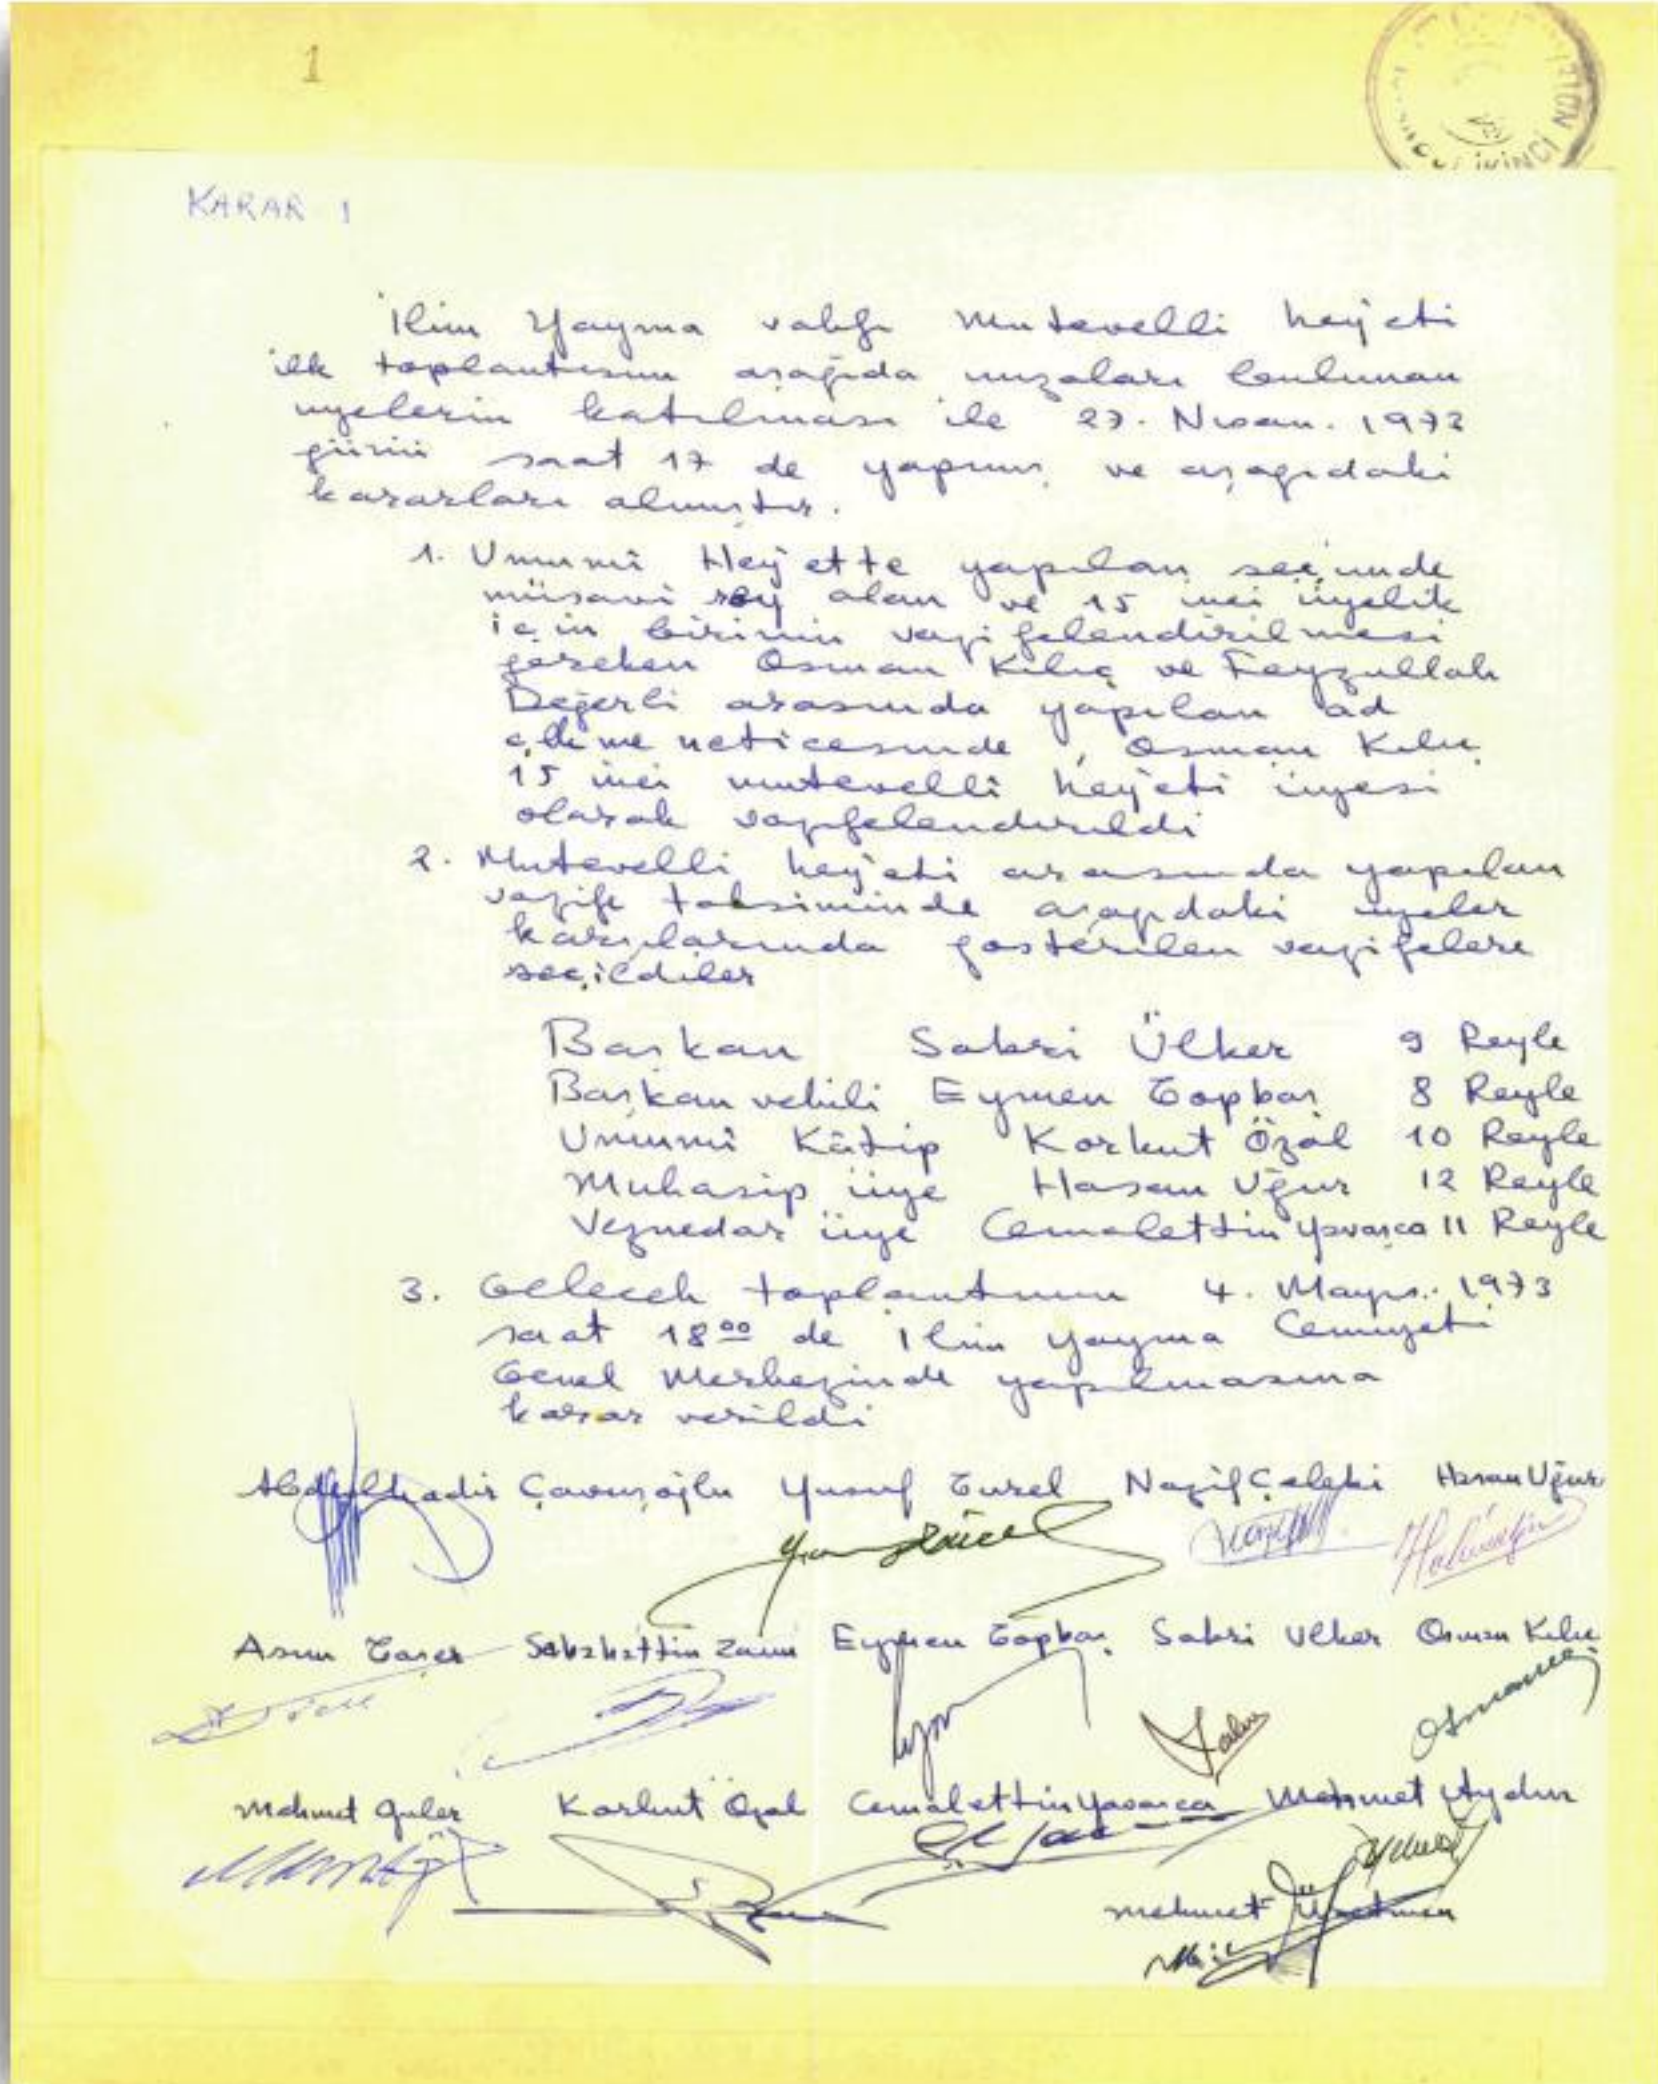 1
NOTER
İKİNCİ
KARAR 1
İlim Yayma vakfı Mutevelli heyeti
ilk toplantısını aşağıda imzaları bulunan
uyelerin katılması ile 27. Nisan. 1973
günü saat 17 de yapmış ve aşagıdaki
kararları almıştır.
1. Umumî Heyette yapılan seçimde
müsavi rey alan ve 15 inci üyelik
için birinin vazifelendirilmesi
gereken Osman Kılıç ve Feyzullah
Değerli arasında yapılan ad
çekme neticesinde, Osman Kılıç
15 inci mutevelli heyeti üyesi
olarak vazifelendirildi
2. Mutevelli heyeti arasında yapılan
vazife taksiminde aşagıdaki uyeler
karşılarında gosterilen vazifelere
seçildiler
Başkan Sabri Ülker 9 Reyle
Başkan vekili Eymen Topbaş 8 Reyle
Umumî Kâtip Korkut Özal 10 Reyle
Muhasip üye Hasan Uğur 12 Reyle
Veznedar üye Cemalettin Yavaşca 11 Reyle
3. Gelecek toplantının 4. Mayıs. 1973
saat 18 00 de İlim Yayma Cemiyeti
Genel Merkezinde yapılmasına
karar verildi
Abdulkadir Çavuşoğlu Yusuf Türel Nazif Çelebi Hasan Uğur
Asım Taşer Sabahattin Zaim Eymen Topbaş Sabri Ulker Osman Kılıç
Mehmet Guler Korkut Özal Cemalettin Yavaşca Mehmet Aydın
Mehmet